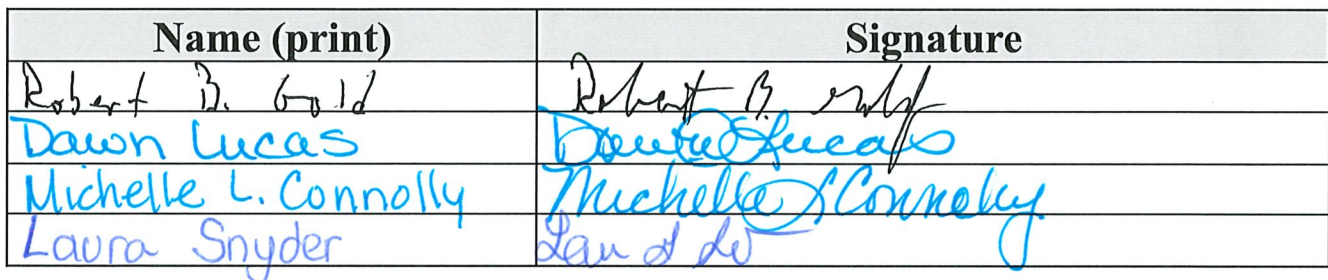 Name (print) Signature
Robert B. Gold Robert B. Gold
Dawn Lucas Dawn Lucas
Michelle L. Connolly Michelle L Connolly
Laura Snyder